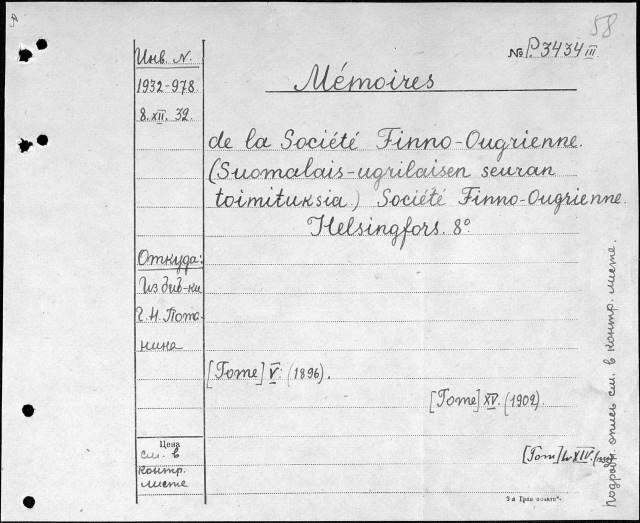 58
№ P.3434 III
Инв. N.
1932-978
8.XII.32.
Mémoires
de la Société Finno-Ougrienne.
(Suomalais-ugrilaisen seuran
toimituksia.) Société Finno-Ougrienne.
Helsingfors. 8°.
Откуда:
Из биб-ки
Г. Н. Пота-
нина
[Tome] V. (1896).
[Tome] XV. (1902).
[Tom]
Цена
см. в
контр.
листе
Подробн. опись см. в контр. листе.